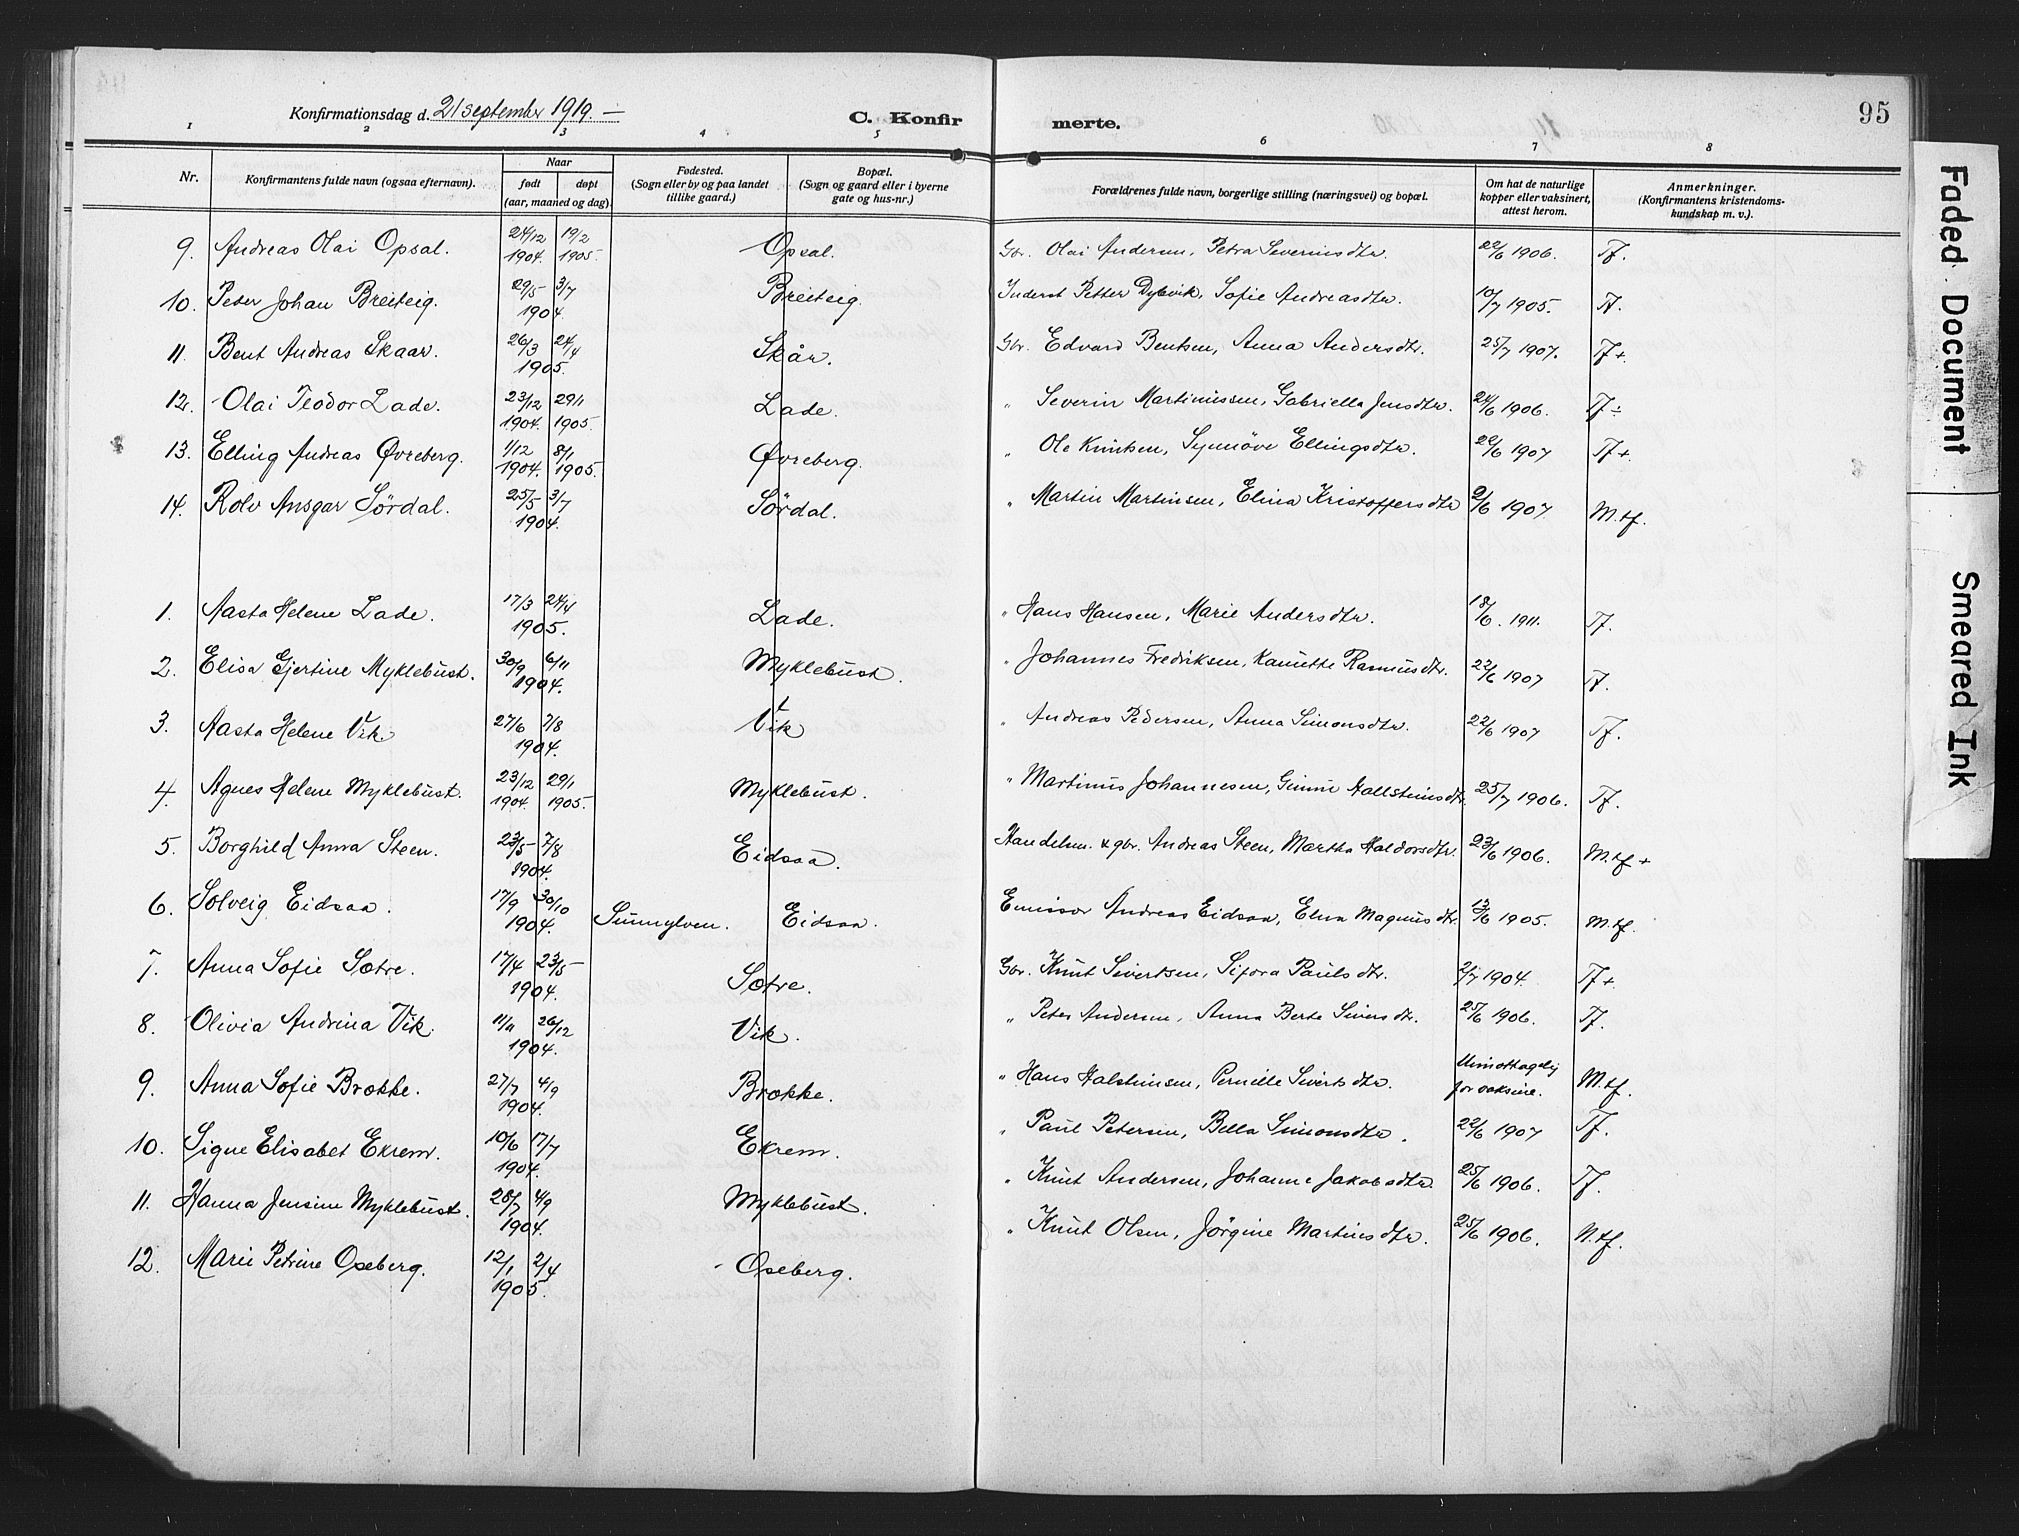 Konfirmationsdag d. 21 september 1919. —
C. Konfir merte.
95
1 2 3 4 5 6 7 8
Nr.
Konfirmantens fulde navn (ogsaa efternavn).
Naar
født døpt
(aar, maaned og dag).
Fødested.
(Sogn eller by og paa landet
tillike gaard.)
Bopæl.
(Sogn og gaard eller i byerne
gate og hus-nr.)
Forældrenes fulde navn, borgerlige stilling (næringsvei) og bopæl.
Om hat de naturlige
kopper eller vaksinert,
attest herom.
Anmerkninger.
(Konfirmantens kristendoms-
kundskap m. v.).
9. Andreas Olai Opsal. 24/12 1904. 19/2 1905. Opsal. Gbr. Olai Andersen, Petra Severinsdtr. 22/6 1906. Tf.
10. Peter Johan Breiteig. 29/5 3/7 1904. Breiteig. Inderst Petter Dybvik, Sofie Andreasdtr. 10/7 1905. Tf.
11. Bent Andreas Skaar. 26/3 24/4 1905. Skår. Gbr. Edvard Bentsen, Anna Andersdtr. 25/7 1907. Tf+
12. Olai Teodor Lade. 23/12 1904. 29/1 1905. Lade. " Severin Martinussen, Gabriella Jensdtr. 24/6 1906. Tf÷
13. Elling Andreas Øvreberg. 1/12 1904. 8/1 1905. Øvreberg. " Ole Knutsen, Synnöve Ellingsdtr. 22/6 1907 Tf+.
14. Rolv Ansgar Sördal. 25/5 3/7 1904. Sördal. " Martin Martinsen, Elina Kristoffersdtr 2/6 1907 M.tf.
1. Aasta Helene Lade. 17/3 24/4 1905. Lade. " Hans Hansen, Marie Andersdtr. 18/6. 1911. Tf.
2. Elisa Gjertine Myklebust. 30/9 6/11 1904. Myklebust. " Johannes Fredriksen, Kanutte Rasmusdtr. 22/6 1907 Tf.
3. Aasta Helene Vik. 27/6 7/8 1904. Vik " Andreas Pedersen, Anna Simonsdtr. 22/6 1907 Tf.
4. Agnes Helene Myklebust. 23/12 1904. 29/1 1905. Myklebust. " Martinus Johannesen, Gunni Hallsteinsdtr. 25/7 1906. Tf.
5. Borghild Anna Steen. 23/5 7/8 1904. Eidsaa. Handelsm. & gbr. Andreas Steen, Martha Haldorsdtr. 23/6 1906. M.tf+
6. Solveig Eidsaa. 17/9 30/10 1904. Sunnylven. Eidsaa. Emissær Andreas Eidsaa, Elna Magnusdtr. 13/6 1905. M.tf.
7. Anna Sofie Sætre. 17/4 23/5 1904. Sætre. Gbr. Knut Sivertsen, Sifora Paulsdtr. 2/7 1904. Tf+.
8. Olivia Andrina Vik. 11/11 26/12 1904. Vik. " Peter Andersen, Anna Berte Siversdtr. 25/6 1906. Tf.
9. Anna Sofie Brække. 27/7 4/9 1904. Brække. " Hans Halsteinsen, Pernille Sivertsdtr. Uimottagelig for vaksine. M.tf.
10. Signe Elisabet Ekrem. 10/6 17/7 1904. Ekrem. " Paul Petersen, Bella Simonsdtr. 22/6 1907 Tf.
11. Hanna Jensine Myklebust. 28/7 4/9 1904. Myklebust. " Knut Andersen, Johanne Jakobsdtr. 25/6 1906. Tf.
12. Marie Petrine Oseberg. 12/1 2/4 1905. Oseberg. " Knut Olsen, Jörgine Martinsdtr. 25/6 1906. N.tf.
Faded Document
Smeared Ink